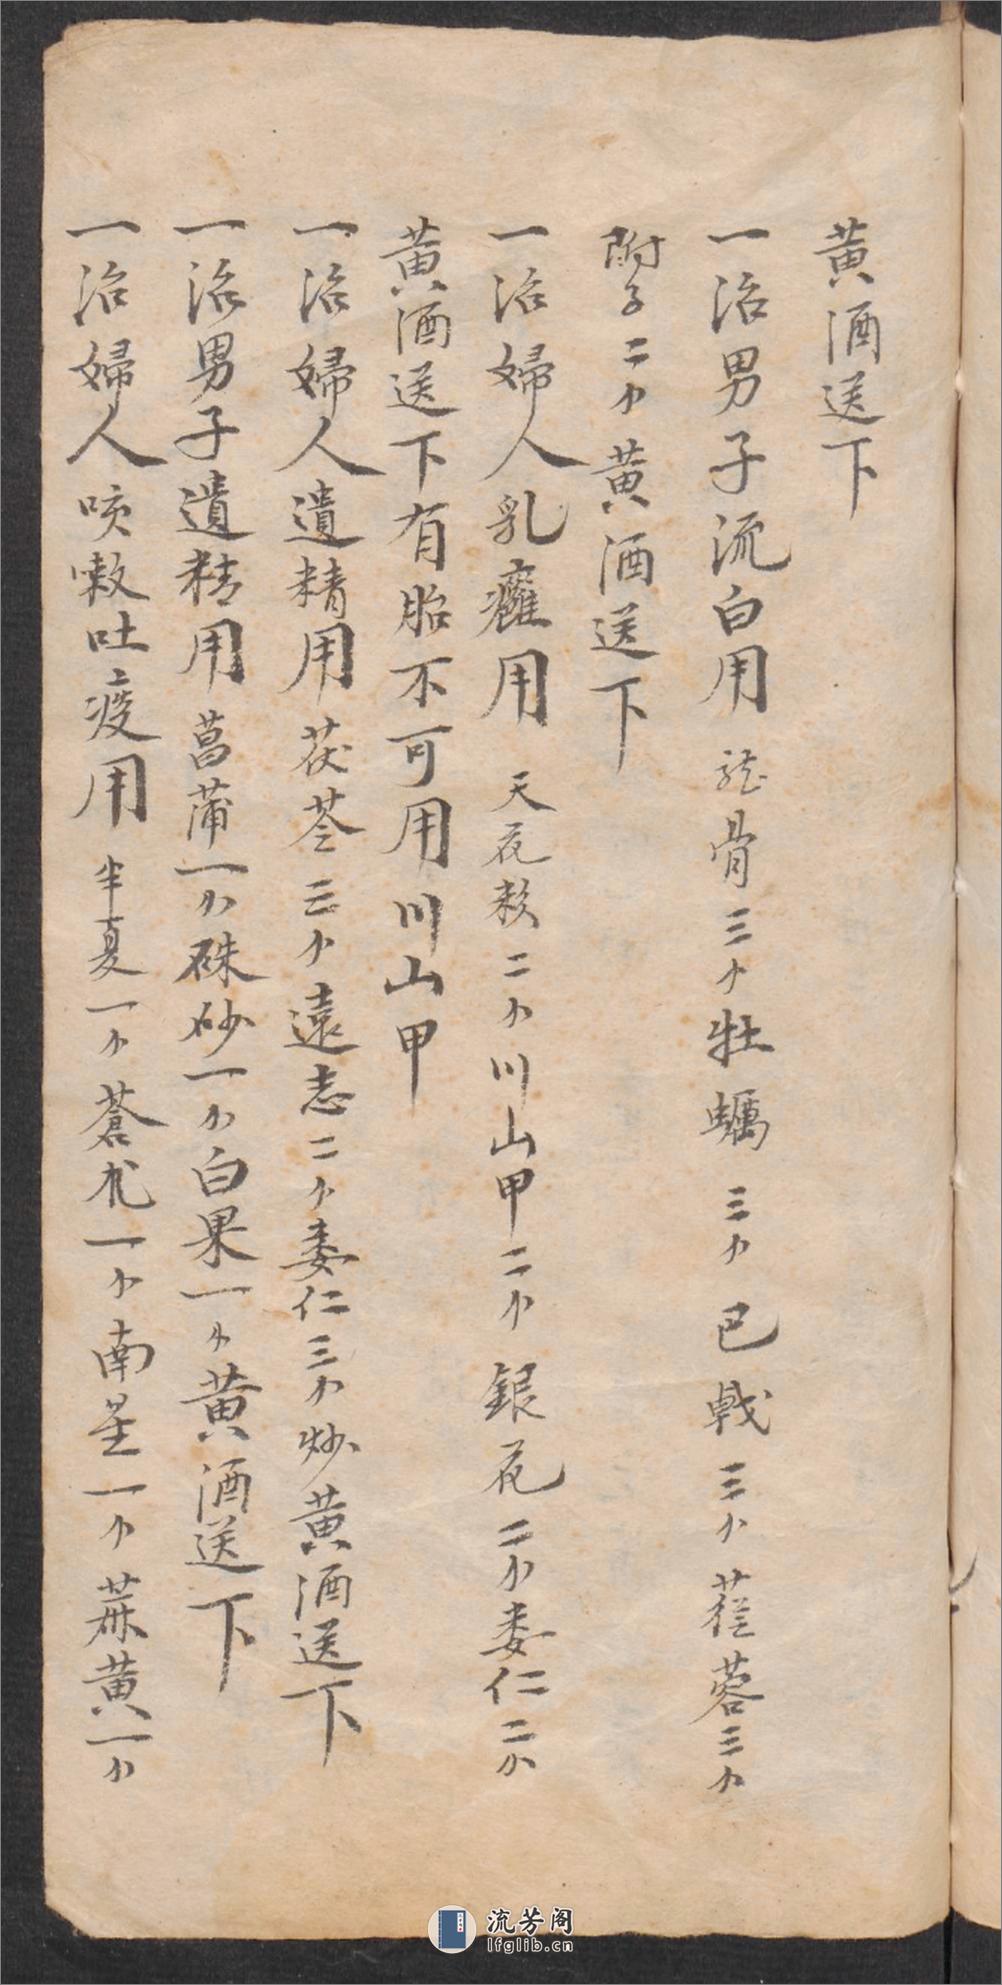 黄酒送下
一治男子流白用龙骨三个牡蠣三个巴戟三个蓯蓉三个
附子二个黄酒送下
一治婦人乳癰用天花粉二个川山甲二个銀花二个娄仁二个
黄酒送下有胎不可用川山甲
一治婦人遺精用茯苓三个遠志二个娄仁三个炒黄酒送下
一治男子遺精用菖蒲一个硃砂一个白果一个黄酒送下
一治婦人咳嗽吐痰用半夏一个蒼朮一个南星一个蔴黄一个
流芳阁
lfglib.cn